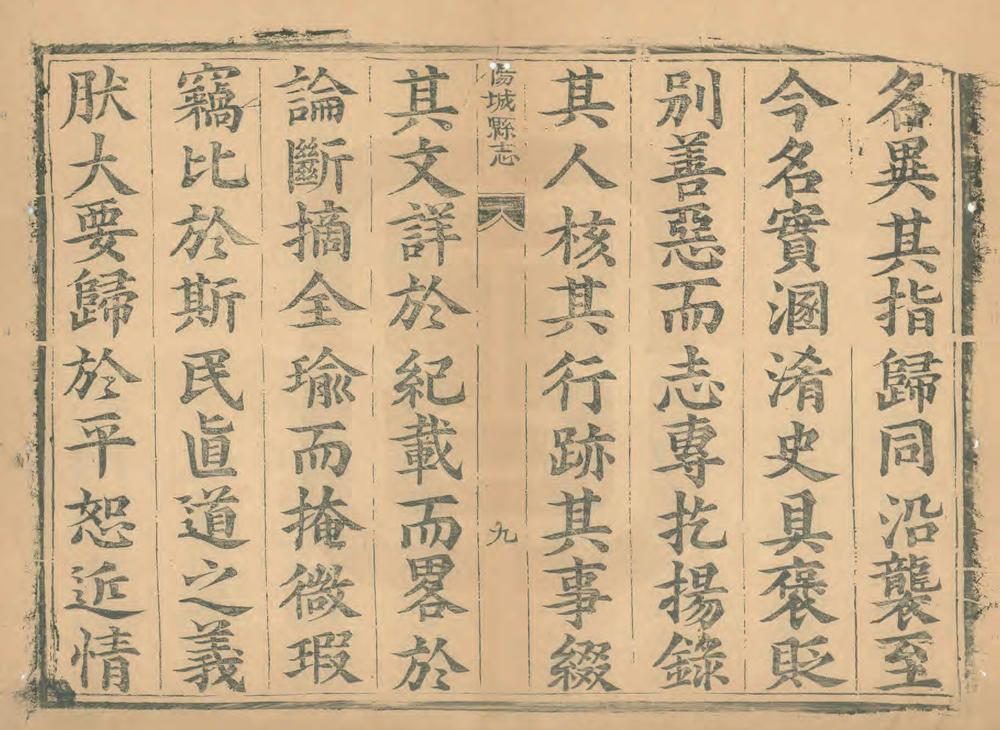 名異其指歸同沿襲至
今名實溷淆史具褒貶
別善惡而志專扢揚錄
其人核其行跡其事綴
傷城縣志
九
其文詳於紀載而畧於
論斷摘全瑜而掩微瑕
竊比於斯民直道之義
肰大要歸於平恕近情